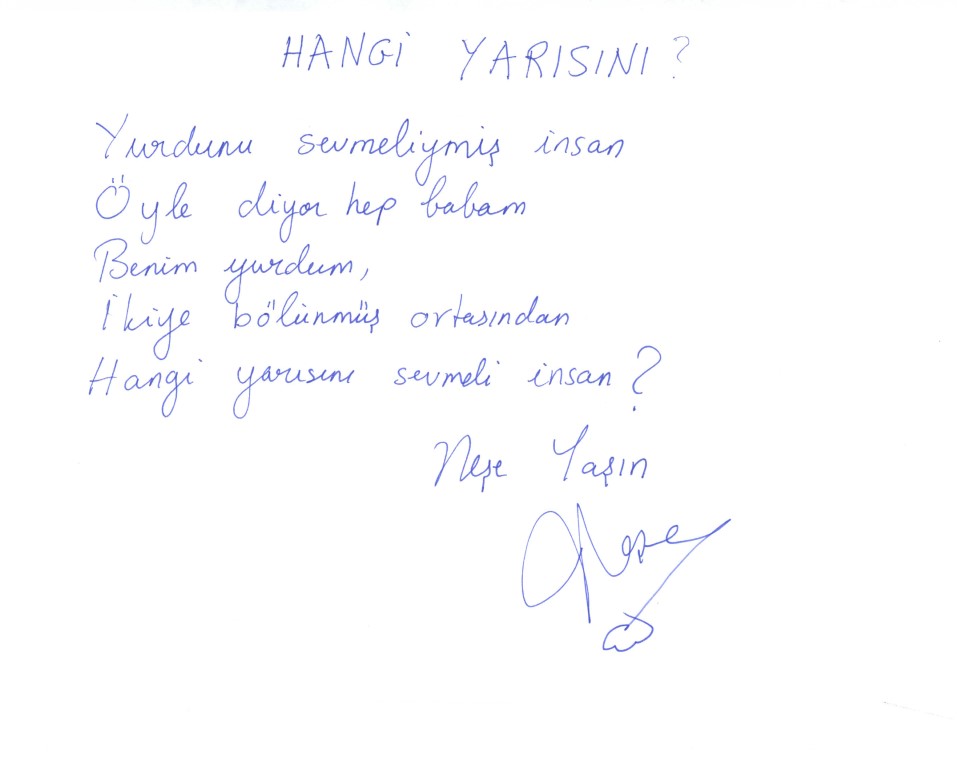 HANGİ YARISINI?
Yurdunu sevmeliymiş insan
Öyle diyor hep babam
Benim yurdum,
İkiye bölünmüş ortasından
Hangi yarısını sevmeli insan?
Neşe Yaşın
Neşe